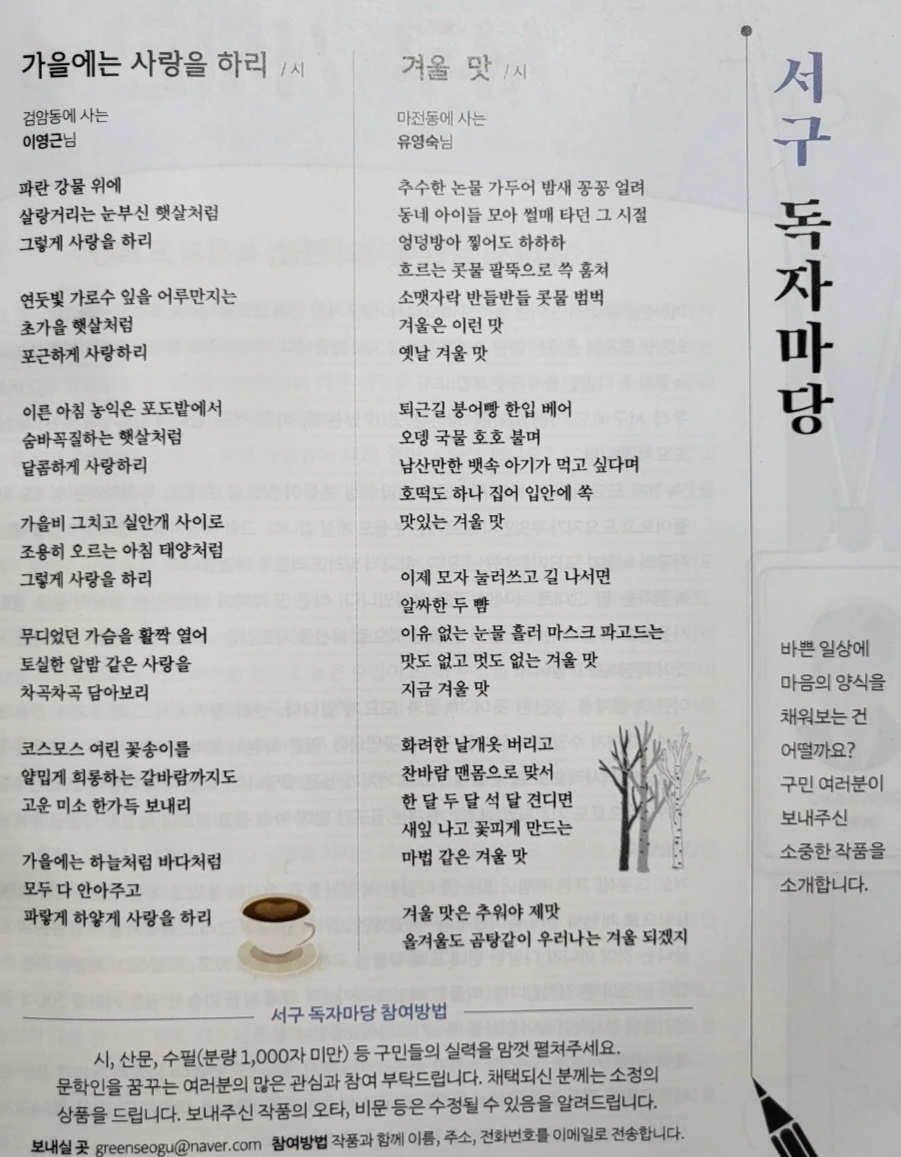 서구 독자마당
바쁜 일상에
마음의 양식을
채워보는 건
어떨까요?
구민 여러분이
보내주신
소중한 작품을
소개합니다.
가을에는 사랑을 하리 /시
검암동에 사는
이영근님
파란 강물 위에
살랑거리는 눈부신 햇살처럼
그렇게 사랑을 하리
연둣빛 가로수 잎을 어루만지는
초가을 햇살처럼
포근하게 사랑하리
이른 아침 농익은 포도밭에서
숨바꼭질하는 햇살처럼
달콤하게 사랑하리
가을비 그치고 실안개 사이로
조용히 오르는 아침 태양처럼
그렇게 사랑을 하리
무디었던 가슴을 활짝 열어
토실한 알밤 같은 사랑을
차곡차곡 담아보리
코스모스 여린 꽃송이를
얄밉게 희롱하는 갈바람까지도
고운 미소 한가득 보내리
가을에는 하늘처럼 바다처럼
모두 다 안아주고
파랗게 하얗게 사랑을 하리
겨울 맛 /시
마전동에 사는
유영숙님
추수한 논물 가두어 밤새 꽁꽁 얼려
동네 아이들 모아 썰매 타던 그 시절
엉덩방아 찧어도 하하하
흐르는 콧물 팔뚝으로 쓱 훔쳐
소맷자락 반들반들 콧물 범벅
겨울은 이런 맛
옛날 겨울 맛
퇴근길 붕어빵 한입 베어
오뎅 국물 호호 불며
남산만한 뱃속 아기가 먹고 싶다며
호떡도 하나 집어 입안에 쏙
맛있는 겨울 맛
이제 모자 눌러쓰고 길 나서면
알싸한 두 뺨
이유 없는 눈물 흘러 마스크 파고드는
맛도 없고 멋도 없는 겨울 맛
지금 겨울 맛
화려한 날개옷 버리고
찬바람 맨몸으로 맞서
한 달 두 달 석 달 견디면
새잎 나고 꽃피게 만드는
마법 같은 겨울 맛
겨울 맛은 추워야 제맛
올겨울도 곰탕같이 우러나는 겨울 되겠지
서구 독자마당 참여방법
시, 산문, 수필(분량 1,000자 미만) 등 구민들의 실력을 맘껏 펼쳐주세요.
문학인을 꿈꾸는 여러분의 많은 관심과 참여 부탁드립니다. 채택되신 분께는 소정의
상품을 드립니다. 보내주신 작품의 오타, 비문 등은 수정될 수 있음을 알려드립니다.
보내실 곳 greenseogu@naver.com 참여방법 작품과 함께 이름, 주소, 전화번호를 이메일로 전송합니다.